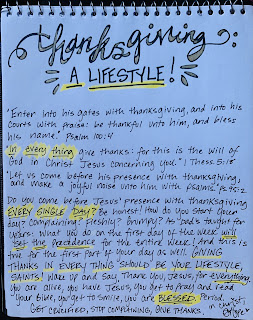 thanksgiving:
A LIFESTYLE!
"Enter into his gates with thanksgiving, and into his
courts with praise: be thankful unto him, and bless
his name." Psalm 100:4
In every thing give thanks: for this is the will of
God in Christ Jesus concerning you." 1 Thess 5:18
"Let us come before his presence with thanksgiving,
and make a joyful noise unto him with psalms." Ps. 95:2
Do you come before Jesus' presence with thanksgiving
EVERY SINGLE DAY? Be honest! How do you start your
day? Complaining? Fleshly? Grumpy? As Dad's taught for
years: What you do on the first day of the week will
set the precedence for the entire week! And this is
true for the first part of your day as well. GIVING
THANKS IN EVERYTHING SHOULD BE YOUR LIFESTYLE,
SAINTS! Wake up and say Thank You Jesus, for everything
You are alive, you have Jesus, you get to pray and read
your Bible, you get to smile, you are BLESSED. Period.
GET CRUCIFIED, STOP COMPLAINING, GIVE THANKS.